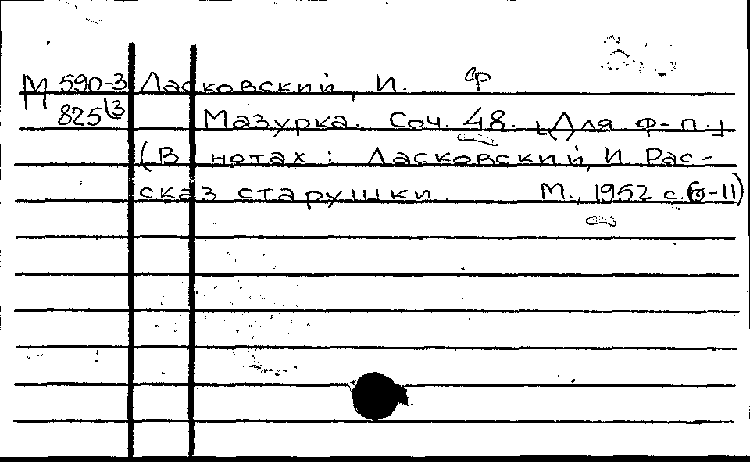 М 590-3 Ласковский, И. Ф
825 Мазурка. Соч. 48. [Для ф-п.]
(В нотах: Ласковский, И. Рас-
сказ старушки. М., 1952 с. -11)